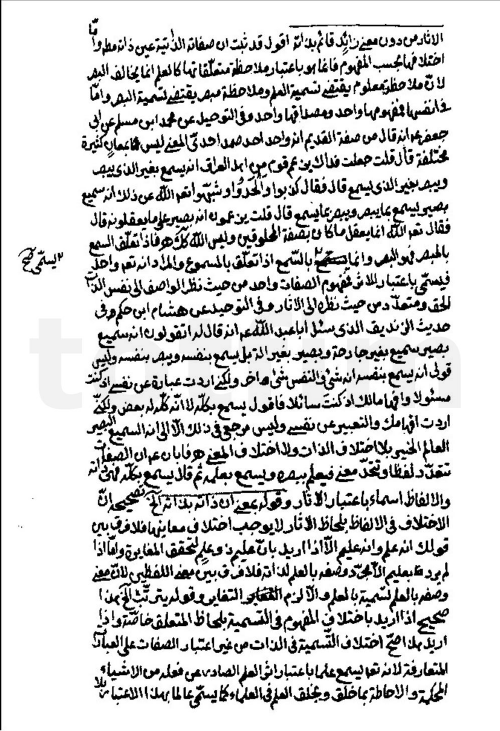 الاثار من دون معنى زائد قائم بذاته اقول قد ثبت ان صفاته الذاتية عين ذاته مطلقا وامّا
اختلافها بحسب المفهوم فانما هو باعتبار ملاحظة متعلقاتها كالعلم انما يخالف البصر
لانّ ملاحظة معلوم يقتضى تسمية العلم وملاحظة مبصر يقتضى تسمية البصر وامّا
فى انفسها فمفهومها واحد ومصداقها واحد وفى التوحيد عن محمد ابن مسلم عن ابى
جعفر ع انه قال من صفة القديم انه واحد احد صمد احدىّ المعنى ليس بمعان كثيرة
مختلفة قال قلت جعلت فداك يزعم قوم من اهل العراق انه يسمع بغير الذى يبصر
ويبصر بغير الذى يسمع قال فقال كذبوا والحدوا وشبّهوا تعالى الله عن ذلك انه سميع
بصير يسمع بما يبصر ويبصر بما يسمع قال قلت يزعمون انه بصير على ما يعقلونه قال
فقال تعالى الله انما يعقل ما كان بصفة المخلوقين وليس الله كذلك فاذا تعلق السمع
بالمبصر فهو البصر وانما بالسمع اذا تعلق بالمسموع والمراد انه تعالى واحد
فيسمّى باعتبار الاثر فمفهوم الصفات واحد من حيث نظر الواصف الى نفس الذات
الحق ومتعدّد من حيث نظره الى الاثار وفى التوحيد عن هشام ابن حكم فى
حديث الزنديق الذى سئل ابا عبد الله ع انه قال له اتقول انه سميع
بصير سميع بغير جارحة وبصير بغير الة بل يسمع بنفسه ويبصر بنفسه وليس
قولى انه يسمع بنفسه انه شئ والنفس شئ اخر ولكنى اردت عبارة عن نفسى اذ كنت
مسئولا وافهاما لك اذ كنت سائلا فاقول يسمع بكلّه لا انّ كلّه له بعض ولكنّى
اردت افهامك والتعبير عن نفسى وليس مرجعى فى ذلك الّا الى انه السميع البصير
العالم الخبير بلا اختلاف الذات ولا اختلاف المعنى فابان ع ان الصفات
تتعدّد لفظا وتتحد معنى فيعلم ببصره ويسمع بعلمه ثم قال يسمع بكلّه فهى ذاته
والالفاظ اسماء باعتبار الاثار وقوله بمعنى ان ذاته بذاته الخ صحيحة انّ
الاختلاف فى الالفاظ بلحاظ الاثار لا يوجب اختلاف معانيها فلا فرق بين
قولك انه علم وانه عليم الّا اذا اريد بانّ عليم ذو علم لتحقق المغايرة وامّا اذا
لم يرد بعليم الّا مجرّد وصفه بالعلم لذاته فلا فرق بين معنى اللفظين لانّ معنى
وصفه بالعلم تسمية بالعلم والّا لزم التغاير وقوله يترتّب الخ بهذا
صحيح اذا اريد باختلاف المفهوم فى التسمية بلحاظ المتعلق خاصّة واذا
اريد بهذا صحّ اختلاف التسمية فى الذات من غير اعتبار الصفات على العبارة
المتعارفة لانه تعالى يسمى علما باعتبار اثر العلم الصادر عن فعله من الاشياء
المحكمة والاحاطة بما خلق وبخلق العلم فى العلماء كما يسمّى عالما بهذا الاعتبار بلا
٢ يسمّى صح